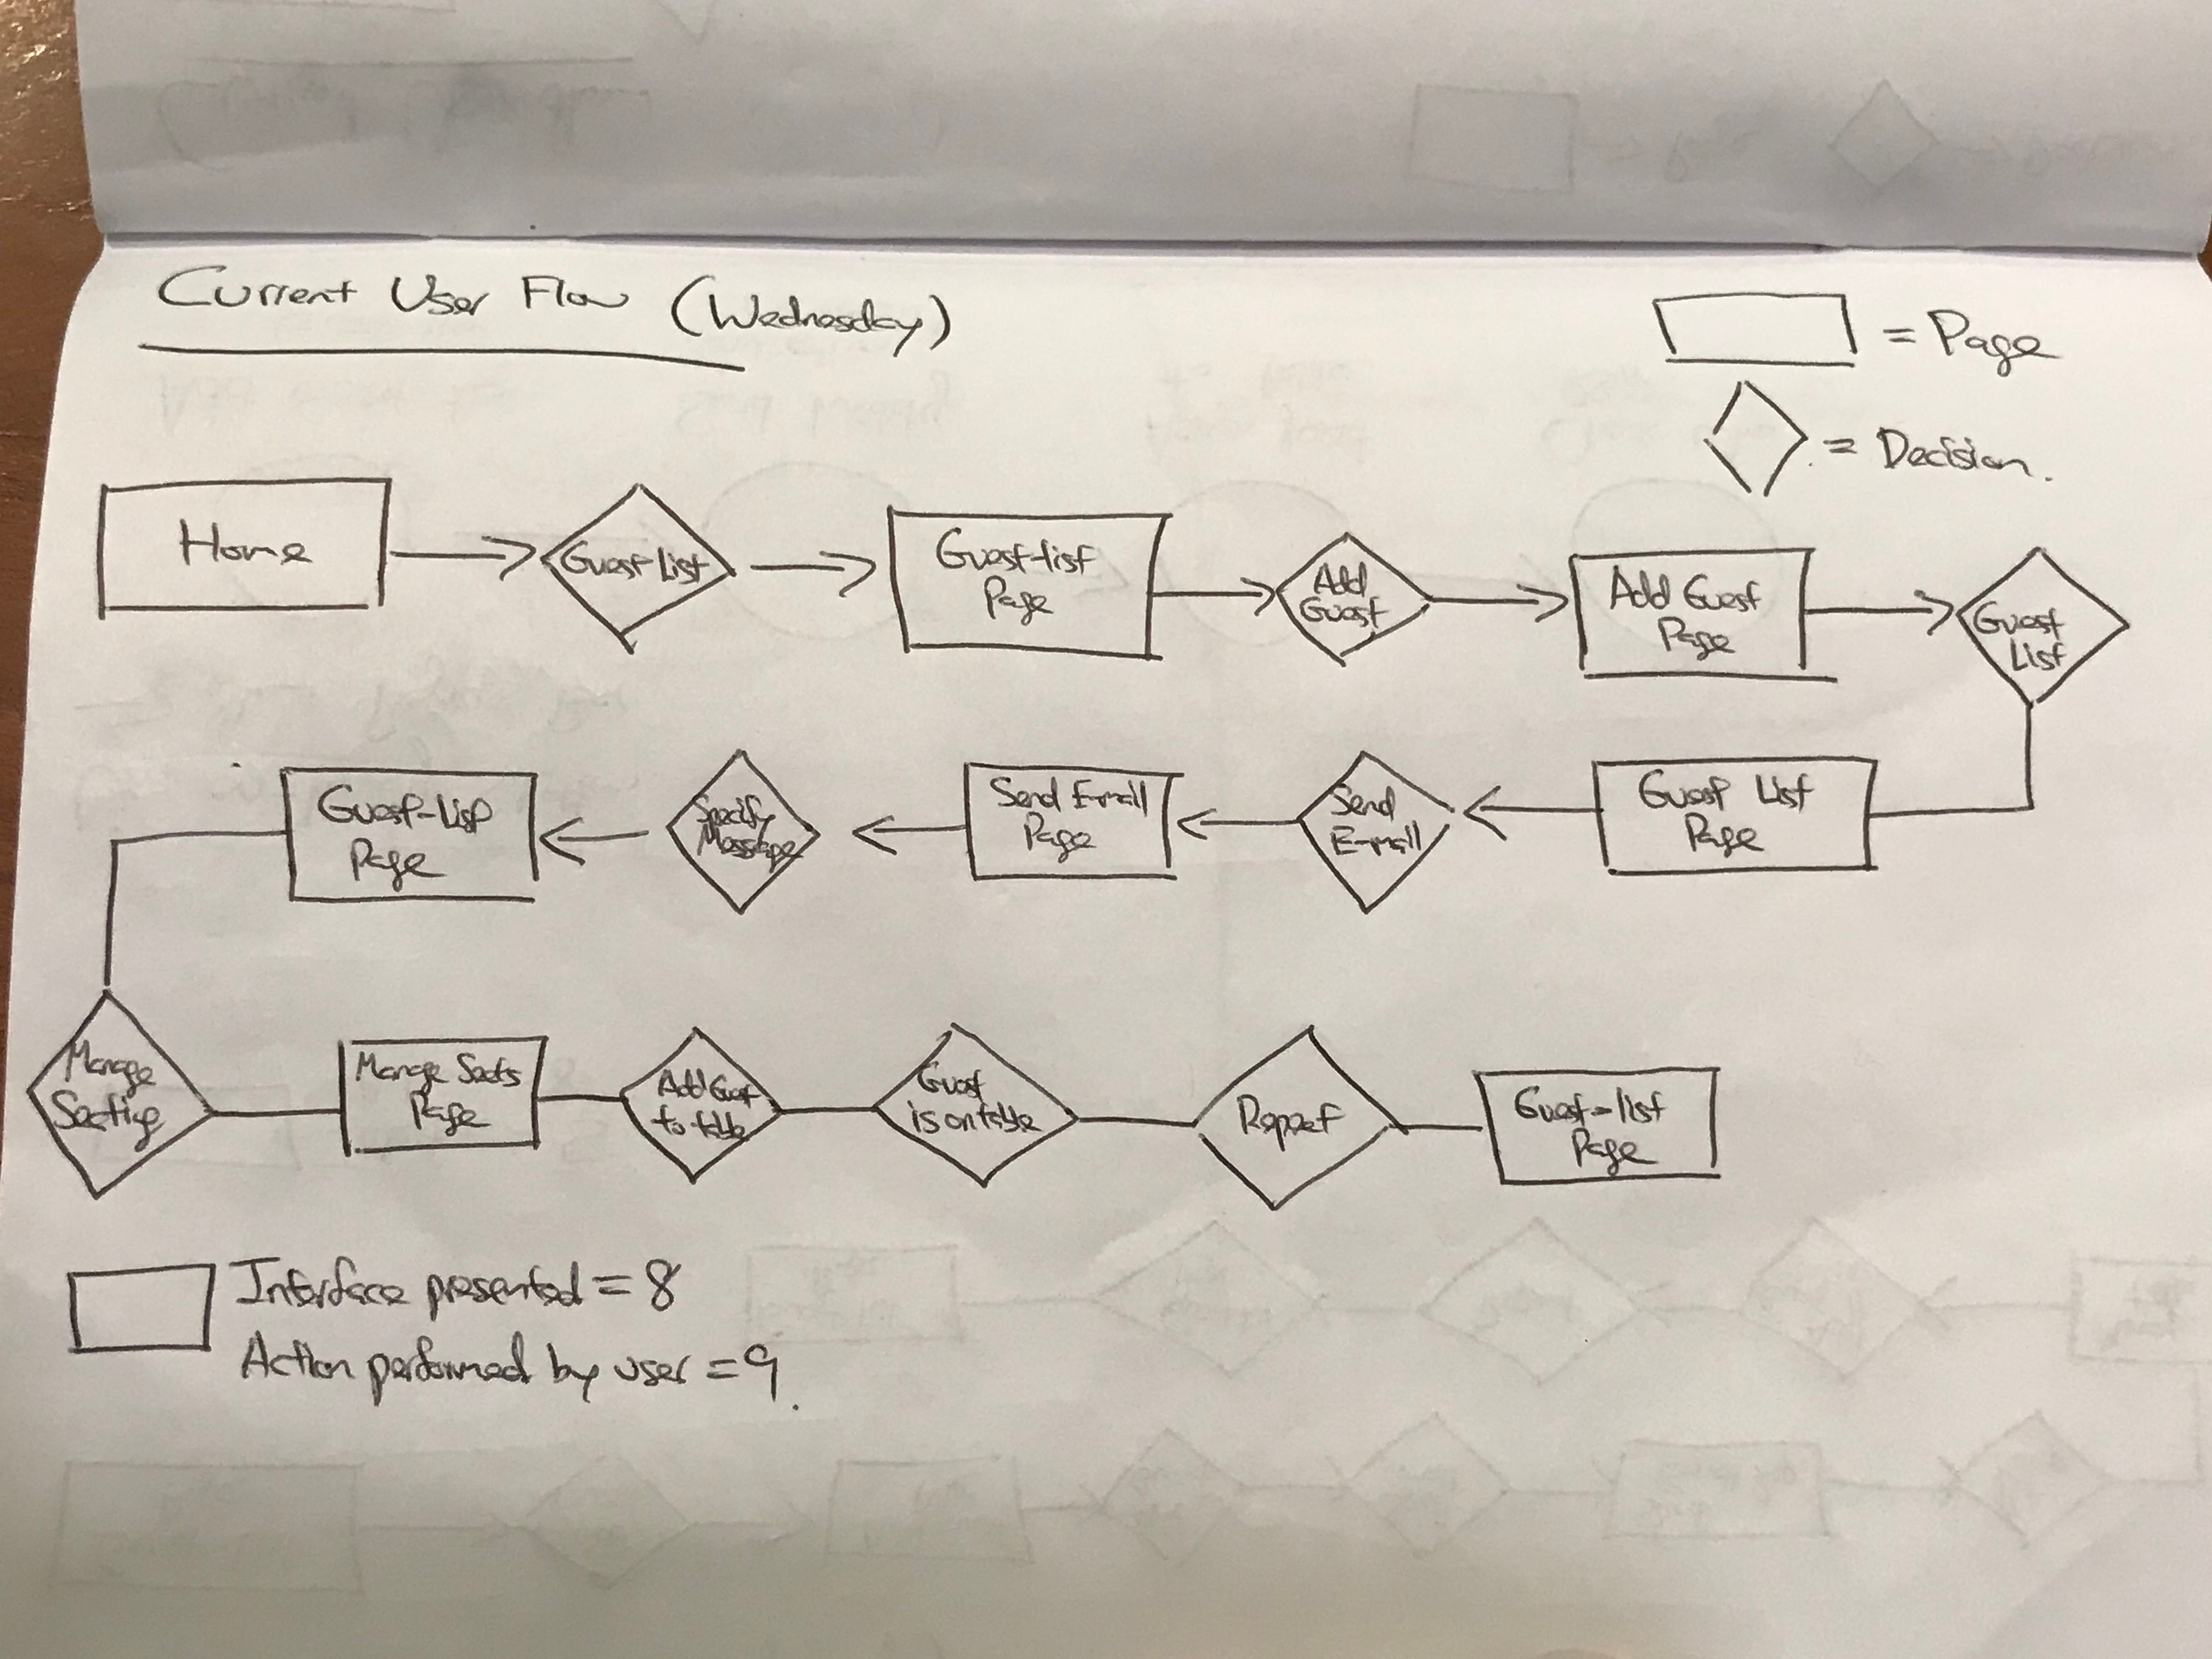 Current User Flow (Wednesday)
= Page
= Decision.
Home
Guest List
Guest-list
Page
Add
Guest
Add Guest
Page
Guest
List
Guest List
Page
Send
E-mail
Send E-mail
Page
Specify
Message
Guest-List
Page
Manage
Seating
Manage Seats
Page
Add Guest
to table
Guest
is on table
Repeat
Guest-list
Page
Interface presented = 8
Action performed by user = 9.